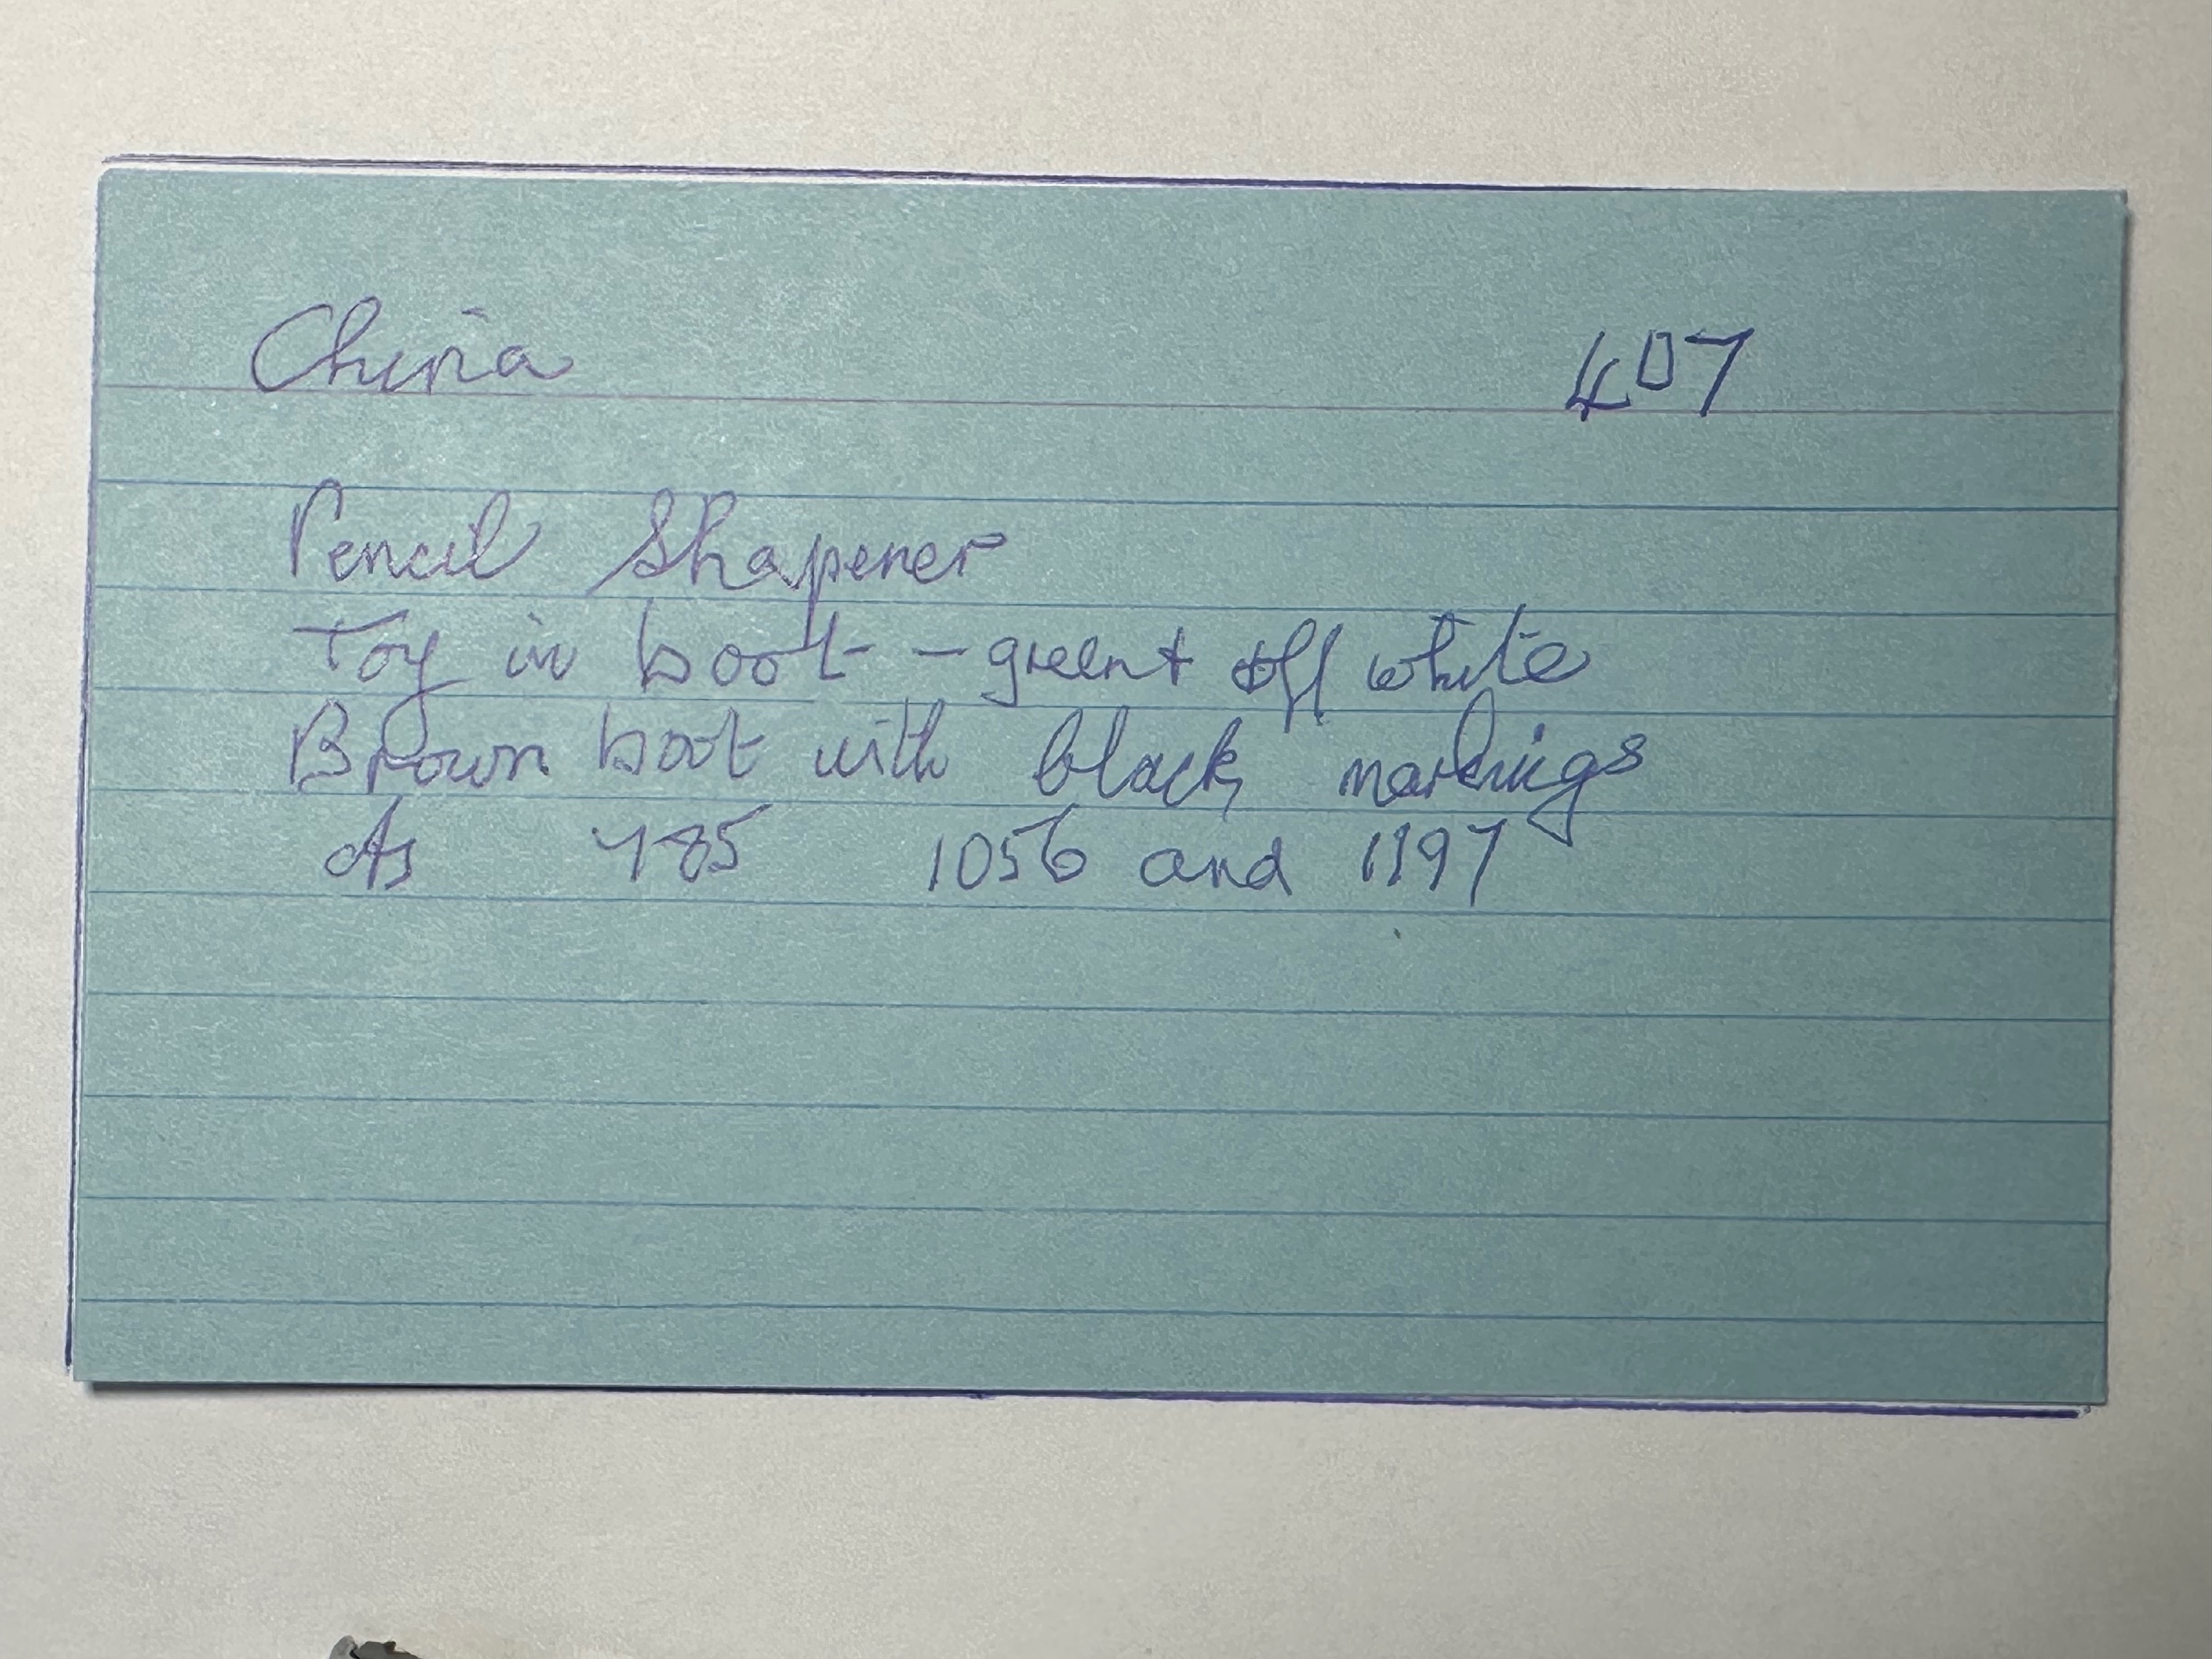 China 407
Pencil Shapener
Toy in boot - green + off white
Brown boot with black markings
As 785 1056 and 1197